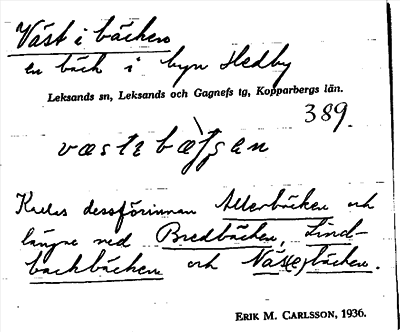 Väst i bäcken
en bäck i byn Hedby
Leksands sn, Leksands och Gagnefs tg, Kopparbergs län.
389.
Kallas dessförinnan Allerbäcken och
längre ned Bredbäcken, Lind-
backbäcken och Näs(e)bäcken.
ERIK M. CARLSSON, 1936.